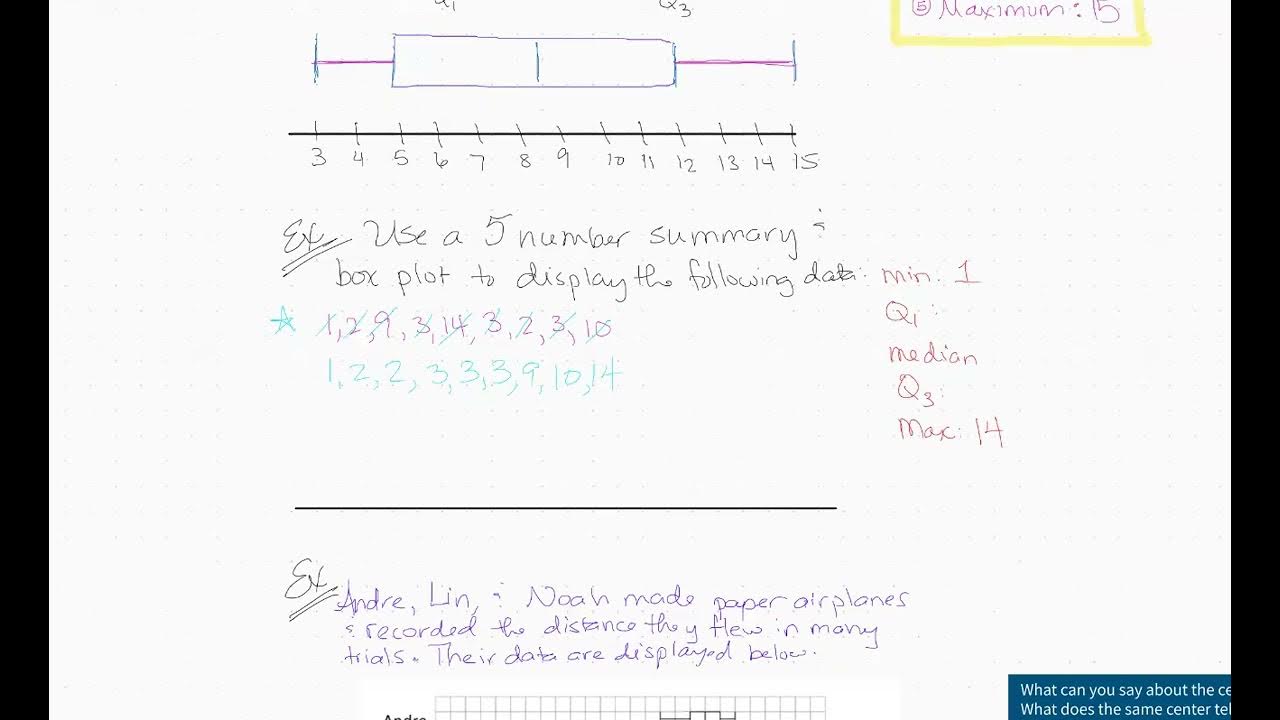 Q3
⑤ Maximum: 15
3 4 5 6 7 8 9 10 11 12 13 14 15
Ex Use a 5 number summary &
box plot to display the following data:
1, 2, 9, 3, 14, 3, 2, 3, 10
1, 2, 2, 3, 3, 3, 9, 10, 14
min: 1
Q1:
median
Q3:
Max: 14
Ex Andre, Lin, & Noah made paper airplanes
& recorded the distance they flew in many
trials. Their data are displayed below.
Andre
What can you say about the ce
What does the same center tel